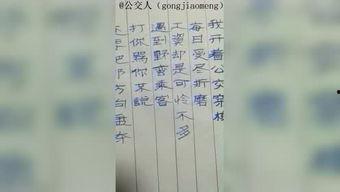 @公交人（gongjiaomeng）
我开着公交穿梭
每日受尽折磨
工資却是可怜不多
遇到野蛮乘客
打你骂你